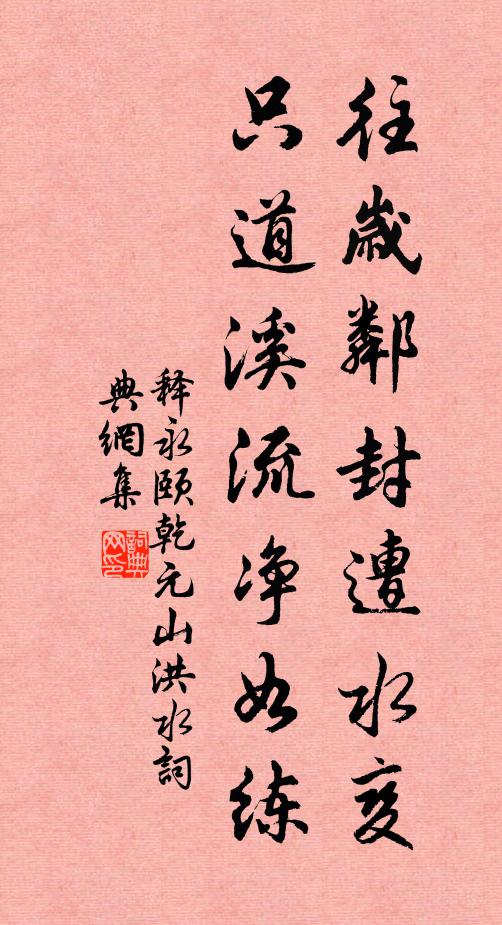 往歲鄰封遭水变
只道溪流净如练
释永颐乾元山洪水詞
典網集
詞典网印